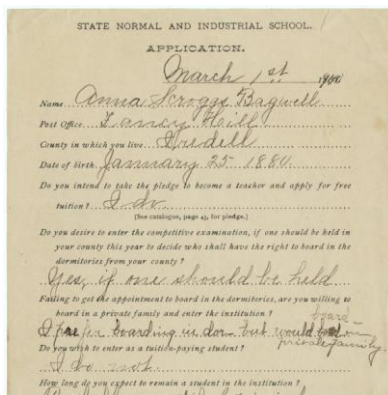 STATE NORMAL AND INDUSTRIAL SCHOOL.
APPLICATION.
March 1st 1900
Name Anna Scroggs Bagwell
Post Office Fancy Hill
County in which you live Iredell
Date of birth January 25 1880
Do you intend to take the pledge to become a teacher and apply for free
tuition? I do
[See catalogue, page 43, for pledge.]
Do you desire to enter the competitive examination, if one should be held in
your county this year to decide who shall have the right to board in the
dormitories from your county?
Yes, if one should be held
Failing to get the appointment to board in the dormitories, are you willing to
board in a private family and enter the institution? board
I prefer boarding in dor- but would in
private family.
Do you wish to enter as a tuition-paying student?
I do not.
How long do you expect to remain a student in the institution?